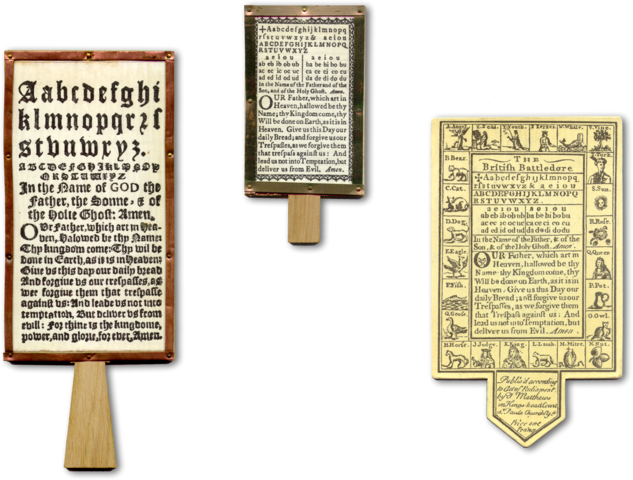 Aabcdefghi
klmnopqrzſ
stvuwryz.
ABCDEFGHIKLMNOP
QRSTUWXYZ
In the Name of GOD the
Father, the Sonne, & of
the Holie Ghost: Amen.
OUr Father, which art in Hea-
ven, Halowed be thy Name:
Thy kingdom come: Thy wil be
done in Earth, as it is in Heaven:
Giue vs this day our daily bread
And forgiue vs our trespasses, as
wee forgiue them that trespasse
against vs: And leade vs not into
temptation, But deliver vs from
evill: For thine is the kingdome,
power, and glorie, for ever, Amen.
+Aabcdefghijklmnopq
rſstuvwxyz& aeiou
ABCDEFGHIJKLMNOPQ
RSTUVWXYZ
aeiou aeiou
ab eb ib ob ub ba be bi bo bu
ac ec ic oc uc ca ce ci co cu
ad ed id od ud da de di do du
In the Name of the Father and of the
Son, and of the Holy Ghost. Amen.
OUR Father, which art in
Heaven, hallowed be thy
Name; thy Kingdom come, thy
Will be done on Earth, as it is in
Heaven. Give us this Day our
daily Bread; and forgive us our
Treſpaſſes, as we forgive them
that treſpaſs againſt us: And
lead us not into Temptation, but
deliver us from Evil. Amen.
T. Ving.
B. Bear.
C. Cat.
D. Dog.
E. Eagle
F. Fish.
G. Goose.
H. Horse. J. Judge. K. King. L. Lamb. M. Mitre. N. Nut.
O. Owl.
P. Pot.
Q. Queen
R. Rose.
S. Sun.
The
British Battledore
+Aabcdefghijklmnopq
rſstuvwxyz & aeiou
ABCDEFGHIJKLMNOPQ
RSTUVWXYZ.
aeiou aeiou
ab eb ib ob ub ba be bi bo bu
ac ec ic oc uc ca ce ci co cu
ad ed id od ud da de di do du
In the Name of the Father, & of the
Son, & of the Holy Ghost. Amen.
OUR Father, which art in
Heaven, hallowed be thy
Name; thy Kingdom come, thy
Will be done on Earth, as it is in
Heaven. Give us this Day our
daily Bread; and forgive us our
Treſpaſſes, as we forgive them
that Treſpaſs againſt us: And
lead us not into Temptation, but
deliver us from Evil. Amen.
Publiſ'd according
to Act of Parliament
by J. Matthews
in Kings head Court
St Pauls Church Yd
Price one
Penny